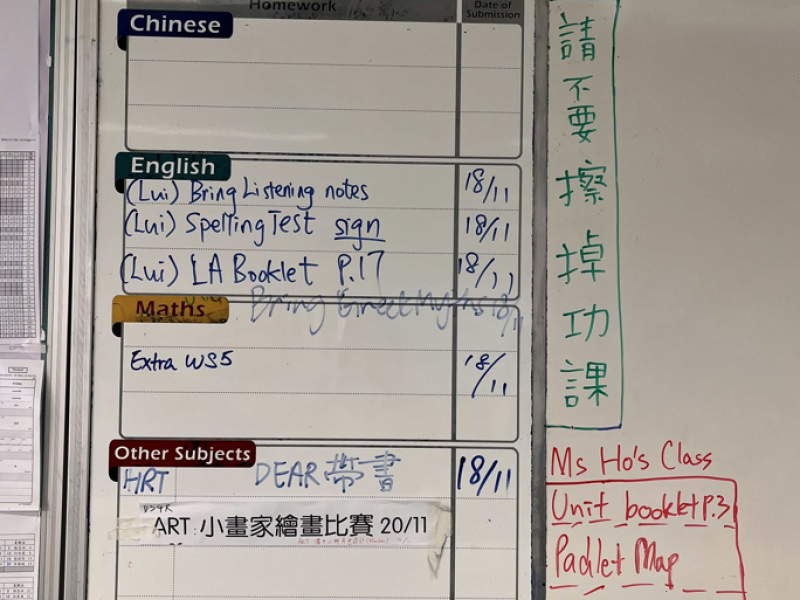 Homework
Date of Submission
Chinese
English
(Lui) Bring Listening notes 18/11
(Lui) Spelling Test sign 18/11
(Lui) LA Booklet P.17 18/11
Bring Greek Myths 18/11
Maths
Extra WS5 18/11
Other Subjects
HRT DEAR 帶書 18/11
ART 小畫家繪畫比賽 20/11
請不要擦掉功課
Ms Ho's Class
Unit booklet P.3
Padlet Map